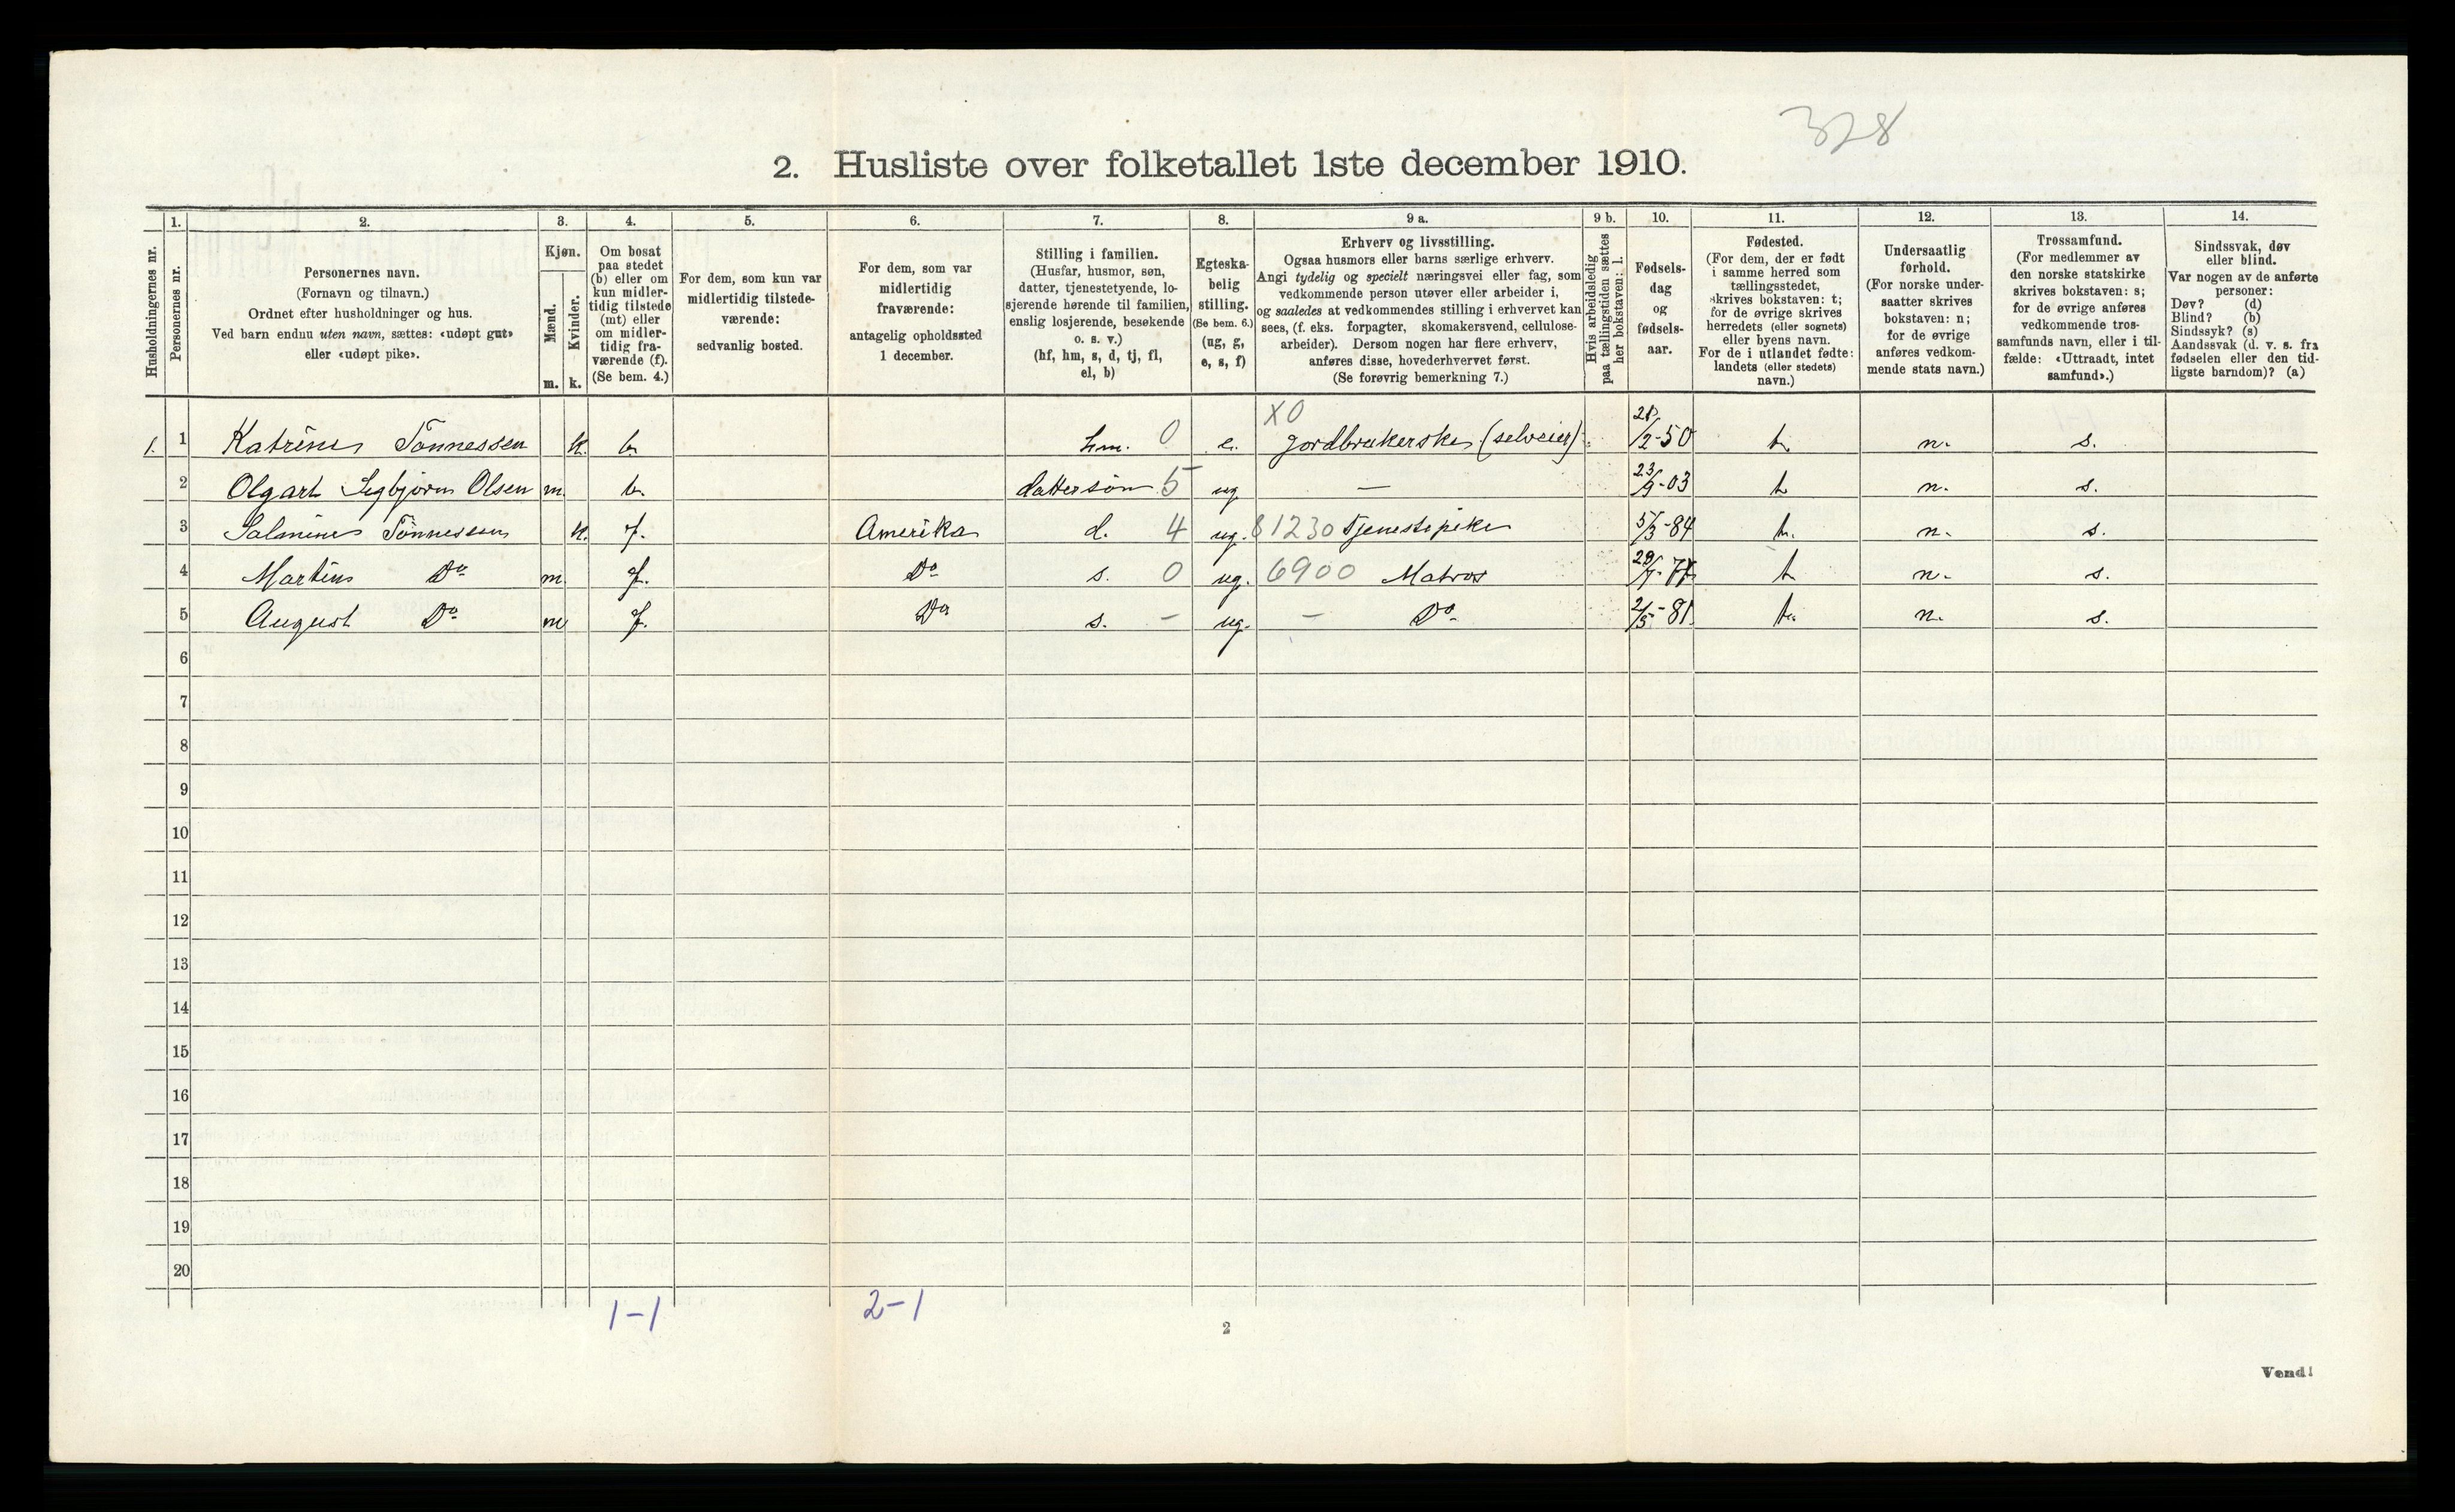 328
2. Husliste over folketallet 1ste december 1910.
Husholdningernes nr.
1. Personernes nr.
2. Personernes navn.
(Fornavn og tilnavn.)
Ordnet efter husholdninger og hus.
Ved barn endnu uten navn, sættes: «udøpt gut»
eller «udøpt pike».
3. Kjøn.
Mænd. m.
Kvinder. k.
4. Om bosat
paa stedet
(b) eller om
kun midler-
tidig tilstede
(mt) eller
om midler-
tidig fra-
værende (f).
(Se bem. 4.)
5. For dem, som kun var
midlertidig tilstede-
værende:
sedvanlig bosted.
6. For dem, som var
midlertidig
fraværende:
antagelig opholdssted
1 december.
7. Stilling i familien.
(Husfar, husmor, søn,
datter, tjenestetyende, lo-
sjerende hørende til familien,
enslig losjerende, besøkende
o. s. v.)
(hf, hm, s, d, tj, fl,
el, b)
8. Egteska-
belig
stilling.
(Se bem. 6.)
(ug, g,
e, s, f)
9 a. Erhverv og livsstilling.
Ogsaa husmors eller barns særlige erhverv.
Angi tydelig og specielt næringsvei eller fag, som
vedkommende person utøver eller arbeider i,
og saaledes at vedkommendes stilling i erhvervet kan
sees, (f. eks. forpagter, skomakersvend, cellulose-
arbeider). Dersom nogen har flere erhverv,
anføres disse, hovederhvervet først.
(Se forøvrig bemerkning 7.)
9 b. Hvis arbeidsledig
paa tællingstiden sættes
her bokstaven: l.
10. Fødsels-
dag
og
fødsels-
aar.
11. Fødested.
(For dem, der er født
i samme herred som
tællingsstedet,
skrives bokstaven: t;
for de øvrige skrives
herredets (eller sognets)
eller byens navn.
For de i utlandet fødte:
landets (eller stedets)
navn.)
12. Undersaatlig
forhold.
(For norske under-
saatter skrives
bokstaven: n;
for de øvrige
anføres vedkom-
mende stats navn.)
13. Trossamfund.
(For medlemmer av
den norske statskirke
skrives bokstaven: s;
for de øvrige anføres
vedkommende tros-
samfunds navn, eller i til-
fælde: «Uttraadt, intet
samfund».)
14. Sindssvak, døv
eller blind.
Var nogen av de anførte
personer:
Døv? (d)
Blind? (b)
Sindssyk? (s)
Aandssvak (d. v. s. fra
fødselen eller den tid-
ligste barndom)? (a)
1. 1 Katrine Tönnessen k. b. hm. 0 e. X0 Jordbrukerske (selveier) /2-50 t. n. s.
2 Olgart Segbjörn Olsen m. b. dattersön 5 ug — 23/9-03 t n. s.
3 Salmine Tönnessen k. f. Amerika d. 4 ug. 81230 Tjenestepike 5/3-84 t. n. s.
4 Martin Do m. f. Do s. 0 ug. 6900 Matros t n. s.
5 August Do m f. Do s. - ug. - Do. 2/5-81. t. n. s.
6
7
8
9
10
11
12
13
14
15
16
17
18
19
20
1-1 2-1
2
Vend!